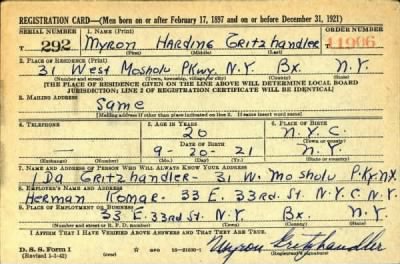 REGISTRATION CARD—(Men born on or after February 17, 1897 and on or before December 31, 1921)
SERIAL NUMBER
1. NAME (Print)
ORDER NUMBER
T 292
Myron Harding Gritzhandler
T 11906
(First) (Middle) (Last)
2. PLACE OF RESIDENCE (Print)
31 West Mosholu Pkwy N.Y. Bx. N.Y.
(Number and street) (Town, township, village, or city) (County) (State)
[THE PLACE OF RESIDENCE GIVEN ON THE LINE ABOVE WILL DETERMINE LOCAL BOARD
JURISDICTION; LINE 2 OF REGISTRATION CERTIFICATE WILL BE IDENTICAL]
3. MAILING ADDRESS
Same
[Mailing address if other than place indicated on line 2. If same insert word same]
4. TELEPHONE
5. AGE IN YEARS
6. PLACE OF BIRTH
20
N.Y.C.
DATE OF BIRTH
(Town or county)
—
9-20-21
N.Y.
(Exchange) (Number)
(Mo.) (Day) (Yr.)
(State or country)
7. NAME AND ADDRESS OF PERSON WHO WILL ALWAYS KNOW YOUR ADDRESS
Ida Gritzhandler - 31 W. Mosholu P.Ky. N.Y.
8. EMPLOYER'S NAME AND ADDRESS
Herman Komar - 33 E. 33rd St. N.Y.C. N.Y.
9. PLACE OF EMPLOYMENT OR BUSINESS
33 E. 33rd St. N.Y. Bx. N.Y.
(Number and street or R. F. D. number) (Town) (County) (State)
I AFFIRM THAT I HAVE VERIFIED ABOVE ANSWERS AND THAT THEY ARE TRUE.
D. S. S. Form 1
(Revised 1-1-42)
(over)
GPO 16—21630-1
Myron Gritzhandler
(Registrant's signature)